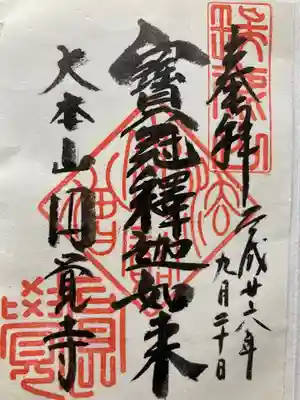 奉拝
平成廿八年
九月二十日
寳冠釋迦如来
大本山円覚寺